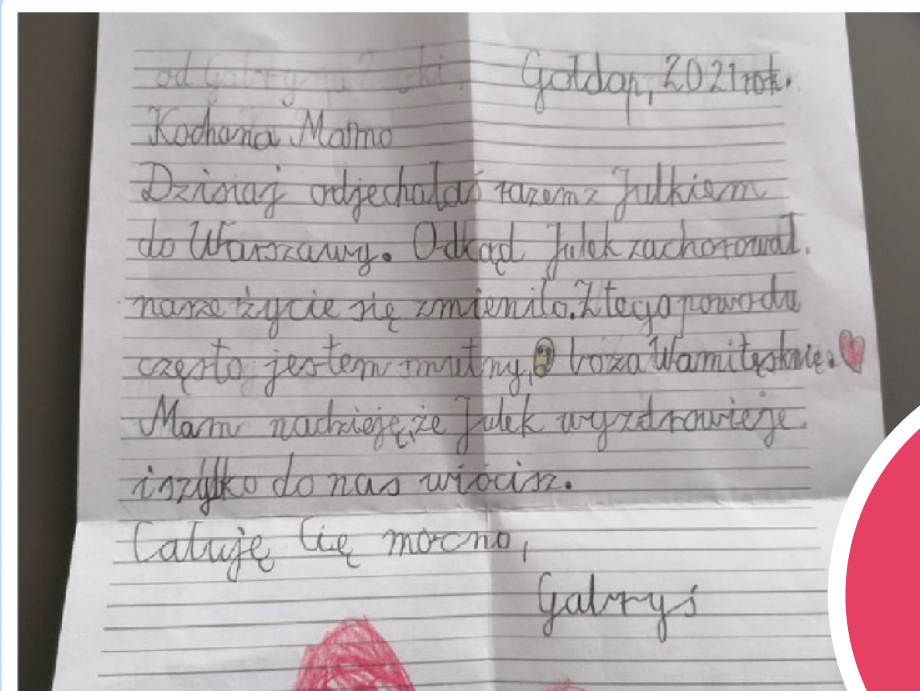 od Gołdap, 2021 rok.
Kochana Mamo
Dzisiaj odjechałaś razem z Julkiem
do Warszawy. Odkąd Julek zachorował.
nasze życie się zmieniło. Z tego powodu
często jestem smutny, bo za Wami tęsknię.
Mam nadzieję, że Julek wyzdrowieje
i szybko do nas wrócisz.
Całuję Cię mocno,
Gabryś